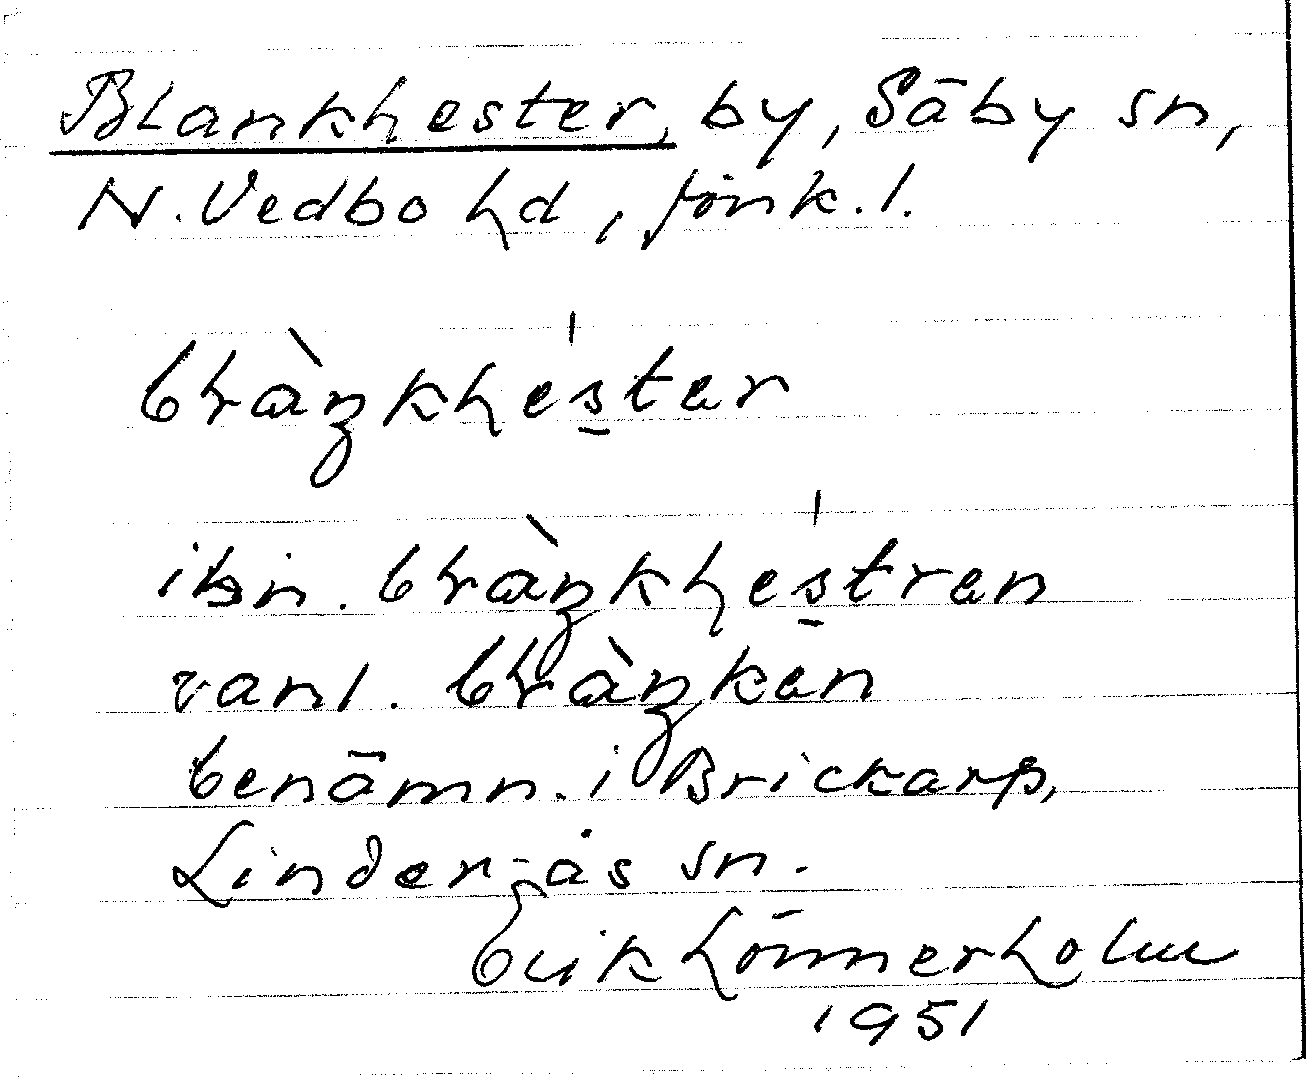 Blankhester, by, Säby sn,
N. Vedbo hd, Jönk. l.
blàŋkhe̍s̠ter
ibn. blàŋkhe̍s̠tren
vanl. blàŋken
benämn. i Brickarp,
Linderås sn.
Erik Lönnerholm
1951